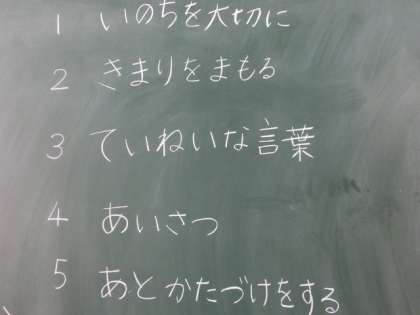 1 いのちを大切に
2 きまりをまもる
3 ていねいな言葉
4 あいさつ
5 あとかたづけをする